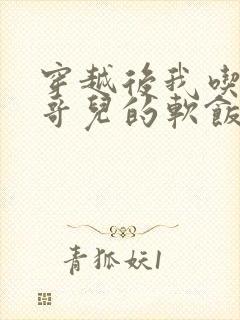 穿越後我喫
哥兒的軟飯
青狐妖1